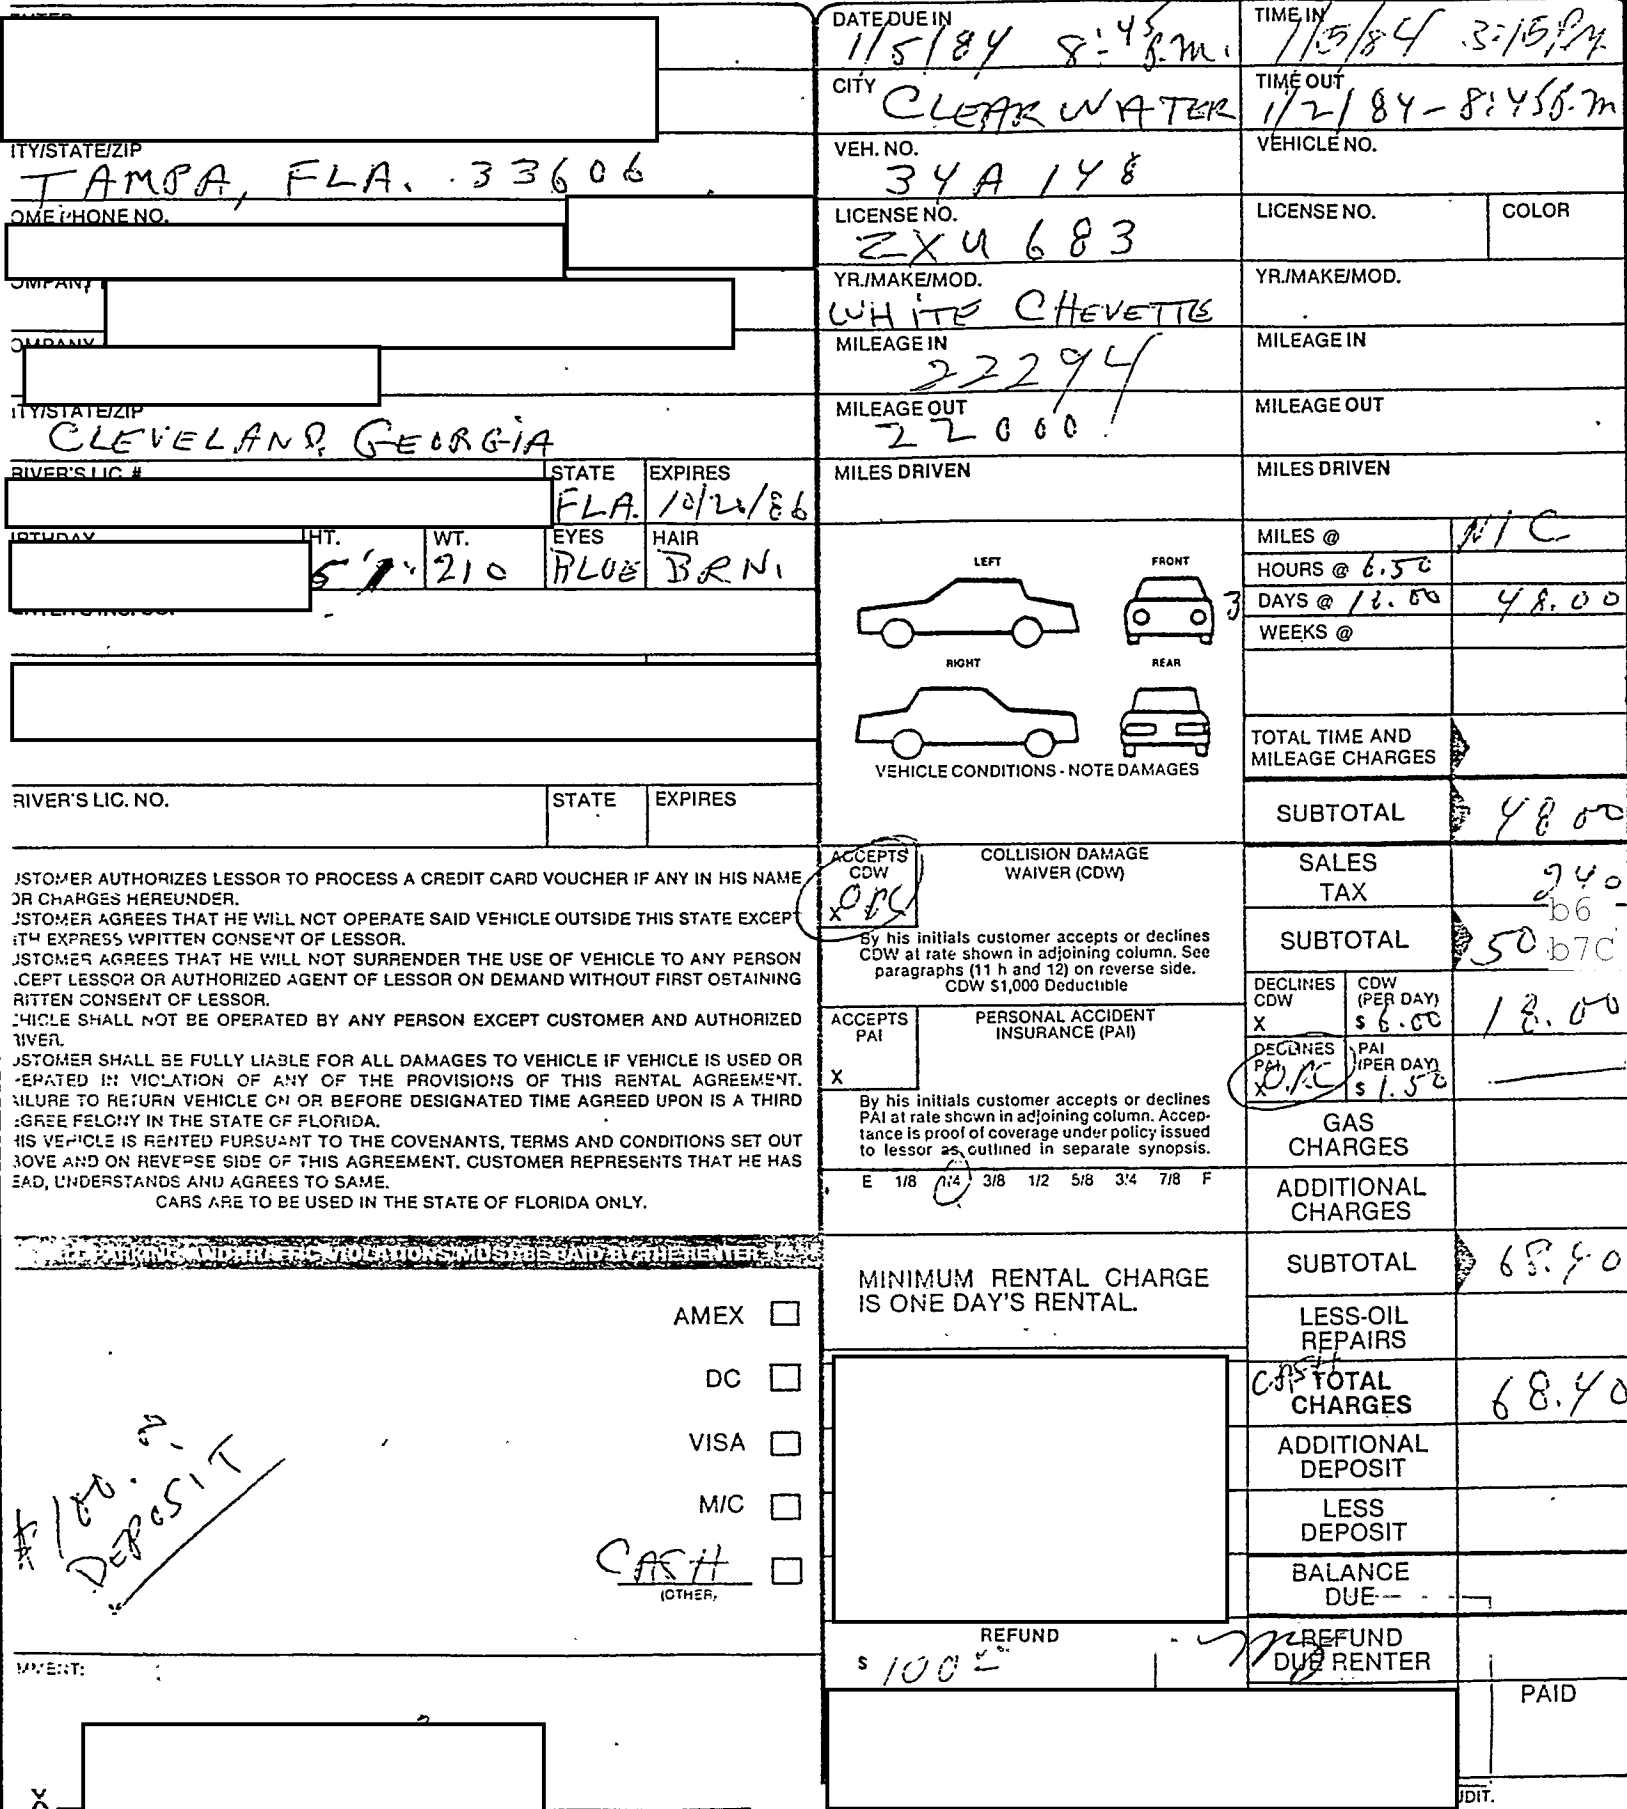 ENTER
ITY/STATE/ZIP
TAMPA, FLA. 33606
OME PHONE NO.
OMPANY
OMPANY
ITY/STATE/ZIP
CLEVELAND, GEORGIA
RIVER'S LIC. # STATE EXPIRES
FLA.
IRTHDAY HT. WT. EYES HAIR
210 BLUE BRN.
RIVER'S LIC. NO. STATE EXPIRES
JSTOMER AUTHORIZES LESSOR TO PROCESS A CREDIT CARD VOUCHER IF ANY IN HIS NAME
OR CHARGES HEREUNDER.
JSTOMER AGREES THAT HE WILL NOT OPERATE SAID VEHICLE OUTSIDE THIS STATE EXCEPT
ITH EXPRESS WRITTEN CONSENT OF LESSOR.
JSTOMER AGREES THAT HE WILL NOT SURRENDER THE USE OF VEHICLE TO ANY PERSON
CEPT LESSOR OR AUTHORIZED AGENT OF LESSOR ON DEMAND WITHOUT FIRST OBTAINING
RITTEN CONSENT OF LESSOR.
EHICLE SHALL NOT BE OPERATED BY ANY PERSON EXCEPT CUSTOMER AND AUTHORIZED
RIVER.
JSTOMER SHALL BE FULLY LIABLE FOR ALL DAMAGES TO VEHICLE IF VEHICLE IS USED OR
ERATED IN VIOLATION OF ANY OF THE PROVISIONS OF THIS RENTAL AGREEMENT.
AILURE TO RETURN VEHICLE ON OR BEFORE DESIGNATED TIME AGREED UPON IS A THIRD
EGREE FELONY IN THE STATE OF FLORIDA.
HIS VEHICLE IS RENTED PURSUANT TO THE COVENANTS, TERMS AND CONDITIONS SET OUT
BOVE AND ON REVERSE SIDE OF THIS AGREEMENT. CUSTOMER REPRESENTS THAT HE HAS
EAD, UNDERSTANDS AND AGREES TO SAME.
CARS ARE TO BE USED IN THE STATE OF FLORIDA ONLY.
PARKING AND TRAFFIC VIOLATIONS MUST BE PAID BY THE RENTER
AMEX
DC
VISA
M/C
CASH
(OTHER)
$100.
DEPOSIT
MMENT:
X
DATE DUE IN
1/5/84 8:45 P.M.
CITY
CLEARWATER
VEH. NO.
34A 148
LICENSE NO.
ZXU 683
YR./MAKE/MOD.
WHITE CHEVETTE
MILEAGE IN
22294
MILEAGE OUT
22000
MILES DRIVEN
LEFT FRONT
RIGHT REAR
VEHICLE CONDITIONS - NOTE DAMAGES
ACCEPTS
CDW
X
COLLISION DAMAGE
WAIVER (CDW)
By his initials customer accepts or declines
CDW at rate shown in adjoining column. See
paragraphs (11 h and 12) on reverse side.
CDW $1,000 Deductible
ACCEPTS
PAI
X
PERSONAL ACCIDENT
INSURANCE (PAI)
By his initials customer accepts or declines
PAI at rate shown in adjoining column. Accep-
tance is proof of coverage under policy issued
to lessor as outlined in separate synopsis.
E 1/8 1/4 3/8 1/2 5/8 3/4 7/8 F
MINIMUM RENTAL CHARGE
IS ONE DAY'S RENTAL.
REFUND
$ 100
TIME IN
1/5/84 3:15 P.M.
TIME OUT
1/2/84 - 8:45 P.M
VEHICLE NO.
LICENSE NO. COLOR
YR./MAKE/MOD.
MILEAGE IN
MILEAGE OUT
MILES DRIVEN
MILES @ N/C
HOURS @ 6.50
3 DAYS @ 48.00
WEEKS @
TOTAL TIME AND
MILEAGE CHARGES
SUBTOTAL 48 00
SALES
TAX 2 40
b6
SUBTOTAL 50 b7C
DECLINES
CDW
X
CDW
(PER DAY)
$ 6.00
18.00
DECLINES
PAI
X
PAI
(PER DAY)
$ 1.50
GAS
CHARGES
ADDITIONAL
CHARGES
SUBTOTAL 68.40
LESS-OIL
REPAIRS
CASH
TOTAL
CHARGES 68.40
ADDITIONAL
DEPOSIT
LESS
DEPOSIT
BALANCE
DUE
REFUND
DUE RENTER
PAID
UDIT.